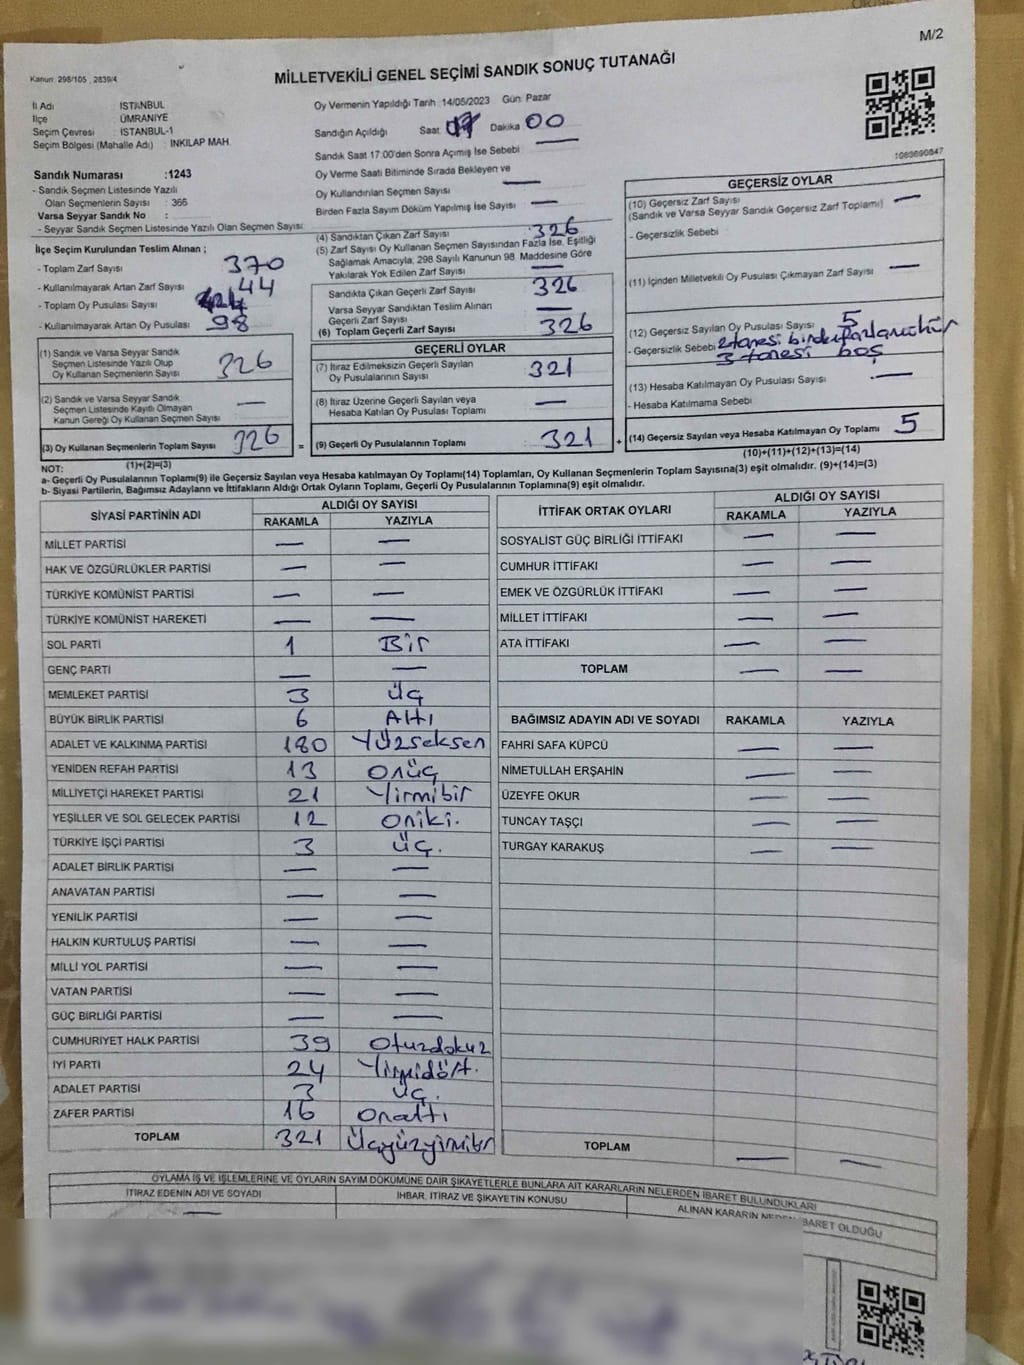 M/2
Kanun: 298/105 , 2839/4
MİLLETVEKİLİ GENEL SEÇİMİ SANDIK SONUÇ TUTANAĞI
İl Adı : İSTANBUL
İlçe : ÜMRANİYE
Seçim Çevresi : İSTANBUL-1
Seçim Bölgesi (Mahalle Adı) : İNKILAP MAH.
Oy Vermenin Yapıldığı Tarih :14/05/2023 Gün: Pazar
Sandığın Açıldığı Saat 17 Dakika 00
Sandık Saat 17:00'den Sonra Açımış İse Sebebi —
Oy Verme Saati Bitiminde Sırada Bekleyen ve
Oy Kullandırılan Seçmen Sayısı —
Birden Fazla Sayım Döküm Yapılmış İse Sayısı —
Sandık Numarası :1243
- Sandık Seçmen Listesinde Yazılı
Olan Seçmenlerin Sayısı : 366
Varsa Seyyar Sandık No :
- Seyyar Sandık Seçmen Listesinde Yazılı Olan Seçmen Sayısı:
İlçe Seçim Kurulundan Teslim Alınan ;
- Toplam Zarf Sayısı 370
- Kullanılmayarak Artan Zarf Sayısı 44
- Toplam Oy Pusulası Sayısı
- Kullanılmayarak Artan Oy Pusulası 98
(1) Sandık ve Varsa Seyyar Sandık
Seçmen Listesinde Yazılı Olup
Oy Kullanan Seçmenlerin Sayısı 326
(2) Sandık ve Varsa Seyyar Sandık
Seçmen Listesinde Kayıtlı Olmayan
Kanun Gereği Oy Kullanan Seçmen Sayısı —
(3) Oy Kullanan Seçmenlerin Toplam Sayısı 326 =
(1)+(2)=(3)
(4) Sandıktan Çıkan Zarf Sayısı 326
(5) Zarf Sayısı Oy Kullanan Seçmen Sayısından Fazla İse, Eşitliği
Sağlamak Amacıyla, 298 Sayılı Kanunun 98. Maddesine Göre
Yakılarak Yok Edilen Zarf Sayısı —
Sandıkta Çıkan Geçerli Zarf Sayısı 326
Varsa Seyyar Sandıktan Teslim Alınan
Geçerli Zarf Sayısı —
(6) Toplam Geçerli Zarf Sayısı 326
GEÇERLİ OYLAR
(7) İtiraz Edilmeksizin Geçerli Sayılan
Oy Pusulalarının Sayısı 321
(8) İtiraz Üzerine Geçerli Sayılan veya
Hesaba Katılan Oy Pusulası Toplamı —
(9) Geçerli Oy Pusulalarının Toplamı : 321 +
1083690847
GEÇERSİZ OYLAR
(10) Geçersiz Zarf Sayısı —
(Sandık ve Varsa Seyyar Sandık Geçersiz Zarf Toplamı)
- Geçersizlik Sebebi
(11) İçinden Milletvekili Oy Pusulası Çıkmayan Zarf Sayısı —
(12) Geçersiz Sayılan Oy Pusulası Sayısı 5
- Geçersizlik Sebebi 2 tanesi
3 tanesi boş
(13) Hesaba Katılmayan Oy Pusulası Sayısı —
- Hesaba Katılmama Sebebi
(14) Geçersiz Sayılan veya Hesaba Katılmayan Oy Toplamı 5
(10)+(11)+(12)+(13)=(14)
NOT:
a- Geçerli Oy Pusulalarının Toplamı(9) ile Geçersiz Sayılan veya Hesaba katılmayan Oy Toplamı(14) Toplamları, Oy Kullanan Seçmenlerin Toplam Sayısına(3) eşit olmalıdır. (9)+(14)=(3)
b- Siyasi Partilerin, Bağımsız Adayların ve İttifakların Aldığı Ortak Oyların Toplamı, Geçerli Oy Pusulalarının Toplamına(9) eşit olmalıdır.
SİYASİ PARTİNİN ADI ALDIĞI OY SAYISI
RAKAMLA YAZIYLA
MİLLET PARTİSİ — —
HAK VE ÖZGÜRLÜKLER PARTİSİ — —
TÜRKİYE KOMÜNİST PARTİSİ — —
TÜRKİYE KOMÜNİST HAREKETİ — —
SOL PARTİ 1 Bir
GENÇ PARTİ — —
MEMLEKET PARTİSİ 3 Üç
BÜYÜK BİRLİK PARTİSİ 6 Altı
ADALET VE KALKINMA PARTİSİ 180 Yüzseksen
YENİDEN REFAH PARTİSİ 13 Onüç
MİLLİYETÇİ HAREKET PARTİSİ 21 Yirmibir
YEŞİLLER VE SOL GELECEK PARTİSİ 12 Oniki.
TÜRKİYE İŞÇİ PARTİSİ 3 Üç.
ADALET BİRLİK PARTİSİ — —
ANAVATAN PARTİSİ — —
YENİLİK PARTİSİ — —
HALKIN KURTULUŞ PARTİSİ — —
MİLLİ YOL PARTİSİ — —
VATAN PARTİSİ — —
GÜÇ BİRLİĞİ PARTİSİ — —
CUMHURİYET HALK PARTİSİ 39 Otuzdokuz
İYİ PARTİ 24 Yirmidört.
ADALET PARTİSİ 3 Üç.
ZAFER PARTİSİ 16 Onaltı
TOPLAM 321 Üçyüzyirmibir
İTTİFAK ORTAK OYLARI ALDIĞI OY SAYISI
RAKAMLA YAZIYLA
SOSYALİST GÜÇ BİRLİĞİ İTTİFAKI — —
CUMHUR İTTİFAKI — —
EMEK VE ÖZGÜRLÜK İTTİFAKI — —
MİLLET İTTİFAKI — —
ATA İTTİFAKI — —
TOPLAM — —
BAĞIMSIZ ADAYIN ADI VE SOYADI RAKAMLA YAZIYLA
FAHRİ SAFA KÜPCÜ — —
NİMETULLAH ERŞAHİN — —
ÜZEYFE OKUR — —
TUNCAY TAŞÇI — —
TURGAY KARAKUŞ — —
TOPLAM — —
OYLAMA İŞ VE İŞLEMLERİNE VE OYLARIN SAYIM DÖKÜMÜNE DAİR ŞİKAYETLERLE BUNLARA AİT KARARLARIN NELERDEN İBARET BULUNDUKLARI
İTİRAZ EDENİN ADI VE SOYADI İHBAR, İTİRAZ VE ŞİKAYETİN KONUSU ALINAN KARARIN NEDEN İBARET OLDUĞU
—